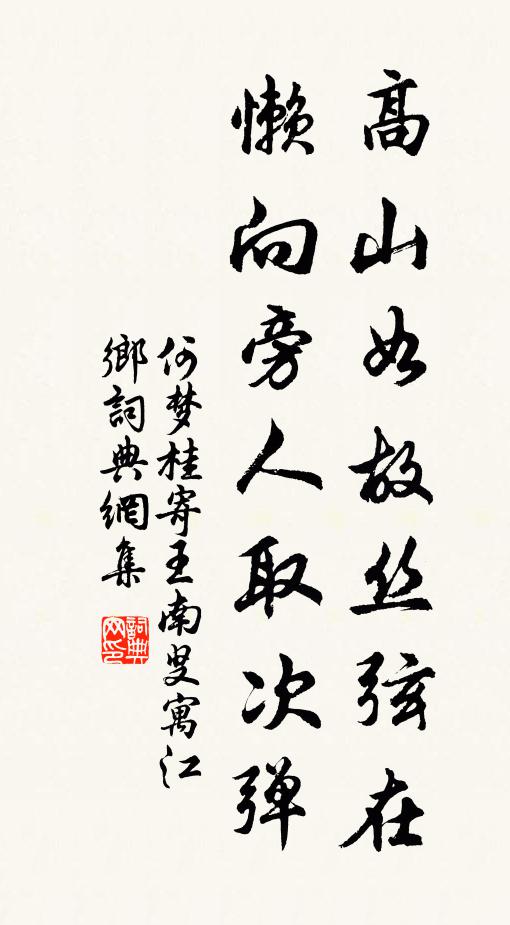 高山如故丝弦在
懒向旁人取次弹
何梦桂寄王南叟寓江
鄉詞典網集
詞典网印